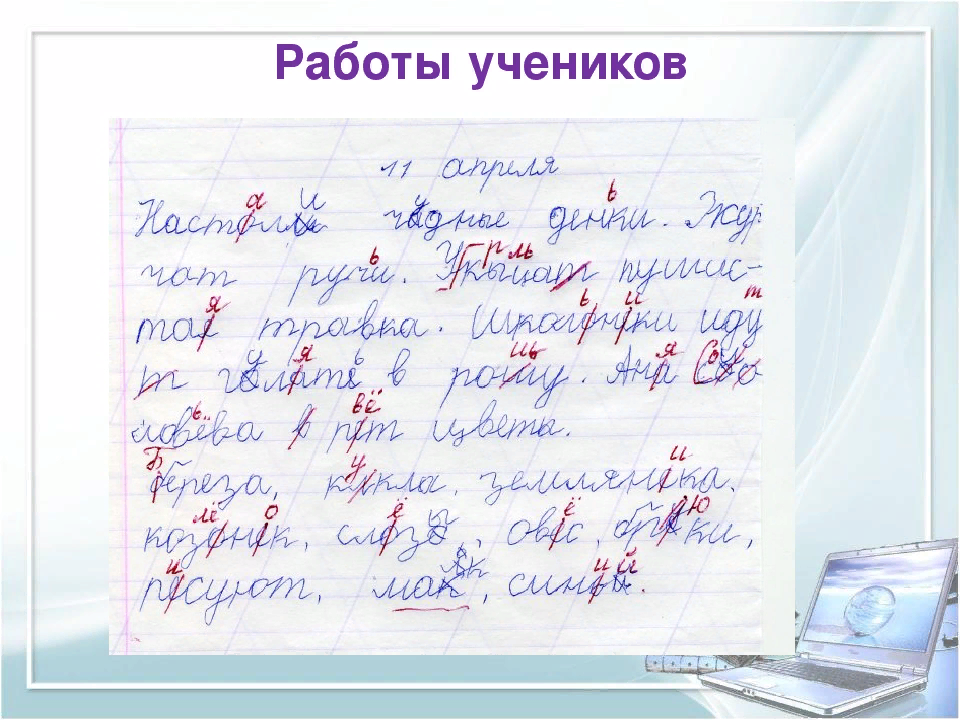 Работы учеников
11 апреля
Настали чудные денки. Жур
чат ручи. пушис-
тая травка. Шкагоники иду
т гулять в рощу. Аня Соло
ловёва в рвёт цветы.
береза, кукла, земляника.
козонк, слёзы, овёс, ки,
рисуют, маяк, синий.